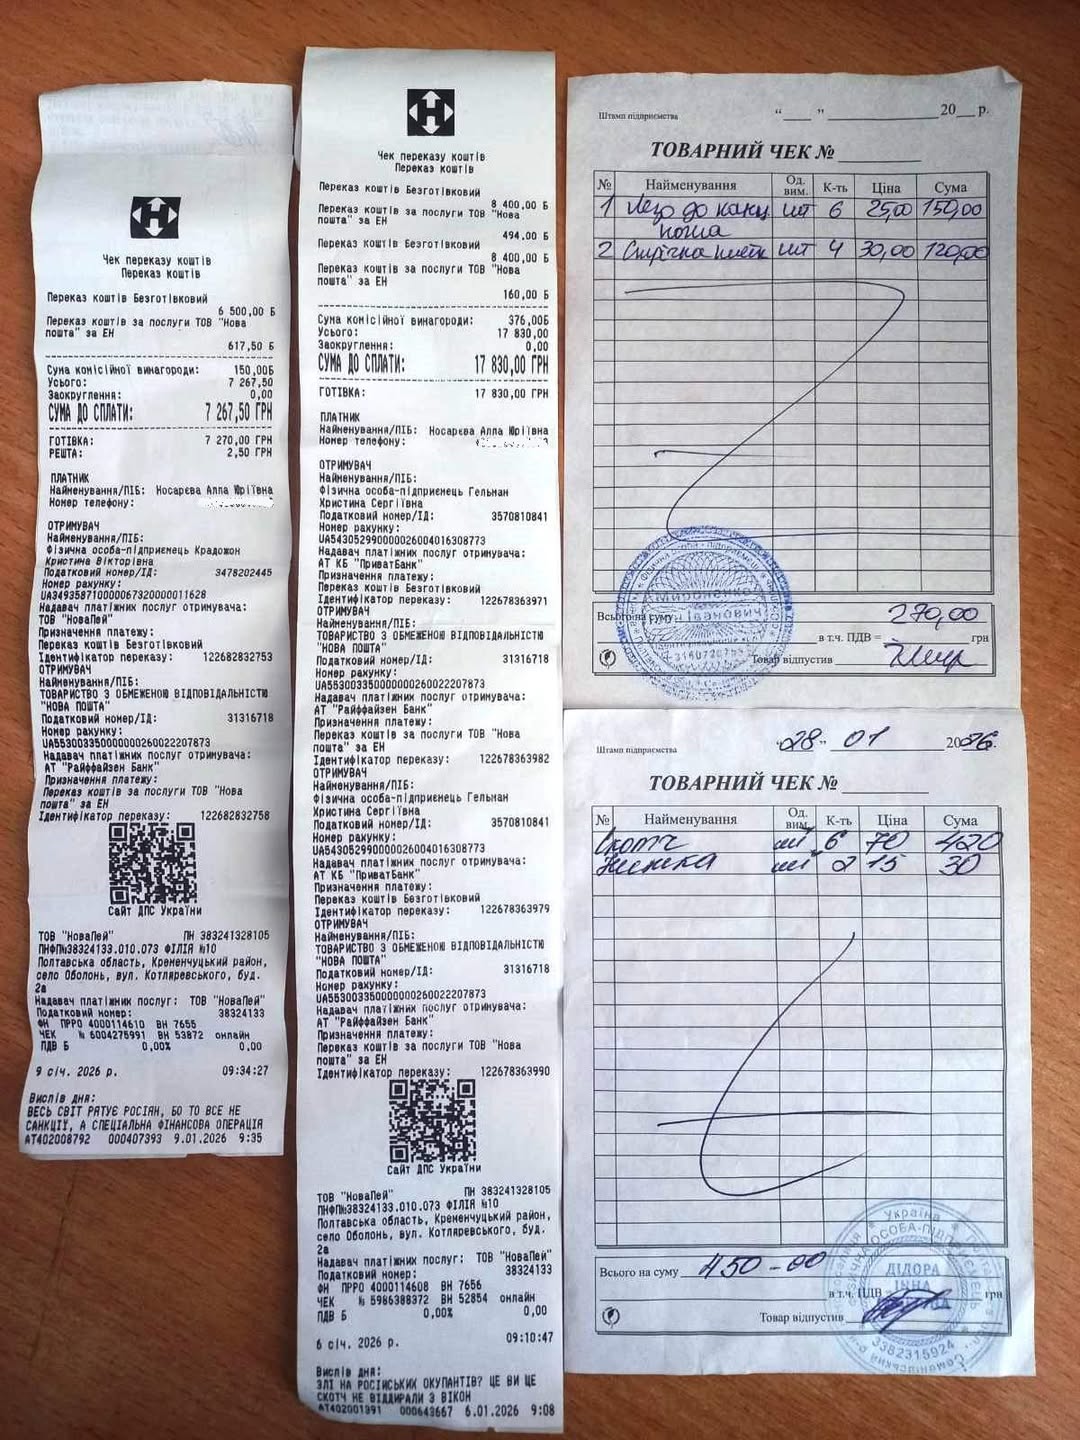 Чек переказу коштів
Переказ коштів
Переказ коштів Безготівковий
6 500,00 Б
Переказ коштів за послуги ТОВ "Нова
пошта" за ЕН
617,50 Б
Сума комісійної винагороди: 150,00Б
Усього: 7 267,50
Заокруглення: 0,00
СУМА ДО СПЛАТИ: 7 267,50 ГРН
ГОТІВКА: 7 270,00 ГРН
РЕШТА: 2,50 ГРН
ПЛАТНИК
Найменування/ПІБ: Носарєва Алла Юріївна
Номер телефону:
ОТРИМУВАЧ
Найменування/ПІБ:
Фізична особа-підприємець Крадожон
Кристина Вікторівна
Податковий номер/ІД: 3478202445
Номер рахунку:
UA349358710000067320000011628
Надавач платіжних послуг отримувача:
ТОВ "НоваПей"
Призначення платежу:
Переказ коштів Безготівковий
Ідентифікатор переказу: 122682832753
ОТРИМУВАЧ
Найменування/ПІБ:
ТОВАРИСТВО З ОБМЕЖЕНОЮ ВІДПОВІДАЛЬНІСТЮ
"НОВА ПОШТА"
Податковий номер/ІД: 31316718
Номер рахунку:
UA553003350000000260022207873
Надавач платіжних послуг отримувача:
АТ "Райффайзен Банк"
Призначення платежу:
Переказ коштів за послуги ТОВ "Нова
пошта" за ЕН
Ідентифікатор переказу: 122682832758
Сайт ДПС України
ТОВ "НоваПей" ПН 383241328105
ПНФП№38324133.010.073 ФІЛІЯ №10
Полтавська область, Кременчуцький район,
село Оболонь, вул. Котляревського, буд.
2а
Надавач платіжних послуг: ТОВ "НоваПей"
Податковий номер: 38324133
ФН ПРРО 4000114610 ВН 7655
ЧЕК № 6004275991 ВН 53872 онлайн
ПДВ Б 0,00% 0,00
9 січ. 2026 р. 09:34:27
Вислів дня:
ВЕСЬ СВІТ РЯТУЄ РОСІЯН, БО ТО ВСЕ НЕ
САНКЦІЇ, А СПЕЦІАЛЬНА ФІНАНСОВА ОПЕРАЦІЯ
АТ402008792 000407393 9.01.2026 9:35
Чек переказу коштів
Переказ коштів
Переказ коштів Безготівковий
8 400,00 Б
Переказ коштів за послуги ТОВ "Нова
пошта" за ЕН
494,00 Б
Переказ коштів Безготівковий
8 400,00 Б
Переказ коштів за послуги ТОВ "Нова
пошта" за ЕН
160,00 Б
Сума комісійної винагороди: 376,00Б
Усього: 17 830,00
Заокруглення: 0,00
СУМА ДО СПЛАТИ: 17 830,00 ГРН
ГОТІВКА: 17 830,00 ГРН
ПЛАТНИК
Найменування/ПІБ: Носарєва Алла Юріївна
Номер телефону:
ОТРИМУВАЧ
Найменування/ПІБ:
Фізична особа-підприємець Гельман
Христина Сергіївна
Податковий номер/ІД: 3570810841
Номер рахунку:
UA543052990000026004016308773
Надавач платіжних послуг отримувача:
АТ КБ "ПриватБанк"
Призначення платежу:
Переказ коштів Безготівковий
Ідентифікатор переказу: 122678363971
ОТРИМУВАЧ
Найменування/ПІБ:
ТОВАРИСТВО З ОБМЕЖЕНОЮ ВІДПОВІДАЛЬНІСТЮ
"НОВА ПОШТА"
Податковий номер/ІД: 31316718
Номер рахунку:
UA553003350000000260022207873
Надавач платіжних послуг отримувача:
АТ "Райффайзен Банк"
Призначення платежу:
Переказ коштів за послуги ТОВ "Нова
пошта" за ЕН
Ідентифікатор переказу: 122678363982
ОТРИМУВАЧ
Найменування/ПІБ:
Фізична особа-підприємець Гельман
Христина Сергіївна
Податковий номер/ІД: 3570810841
Номер рахунку:
UA543052990000026004016308773
Надавач платіжних послуг отримувача:
АТ КБ "ПриватБанк"
Призначення платежу:
Переказ коштів Безготівковий
Ідентифікатор переказу: 122678363979
ОТРИМУВАЧ
Найменування/ПІБ:
ТОВАРИСТВО З ОБМЕЖЕНОЮ ВІДПОВІДАЛЬНІСТЮ
"НОВА ПОШТА"
Податковий номер/ІД: 31316718
Номер рахунку:
UA553003350000000260022207873
Надавач платіжних послуг отримувача:
АТ "Райффайзен Банк"
Призначення платежу:
Переказ коштів за послуги ТОВ "Нова
пошта" за ЕН
Ідентифікатор переказу: 122678363990
Сайт ДПС України
ТОВ "НоваПей" ПН 383241328105
ПНФП№38324133.010.073 ФІЛІЯ №10
Полтавська область, Кременчуцький район,
село Оболонь, вул. Котляревського, буд.
2а
Надавач платіжних послуг: ТОВ "НоваПей"
Податковий номер: 38324133
ФН ПРРО 4000114608 ВН 7656
ЧЕК № 5986388372 ВН 52854 онлайн
ПДВ Б 0,00% 0,00
6 січ. 2026 р. 09:10:47
Вислів дня:
ЗЛІ НА РОСІЙСЬКИХ ОКУПАНТІВ? ЦЕ ВИ ЩЕ
СКОТЧ НЕ ВІДДИРАЛИ З ВІКОН
АТ402001391 000643667 6.01.2026 9:08
Штамп підприємства "___" ________ 20__ р.
ТОВАРНИЙ ЧЕК № ______
№ Найменування Од. вим. К-ть Ціна Сума
1 Лезо до канц. шт 6 25,00 150,00
ножа
2 Стрічка шт 4 30,00 120,00
Мироненко
Іванович
Всього на суму 270,00
в т.ч. ПДВ = грн
Товар відпустив
Штамп підприємства "28" 01 2026р.
ТОВАРНИЙ ЧЕК № ______
№ Найменування Од. вим. К-ть Ціна Сума
Скотч шт 6 70 420
Нитка шт 2 15 30
Україна
ФІЗИЧНА ОСОБА-ПІДПРИЄМЕЦЬ
ДІДОРА
ІННА
3382315924
Всього на суму 450-00
в т.ч. ПДВ грн
Товар відпустив